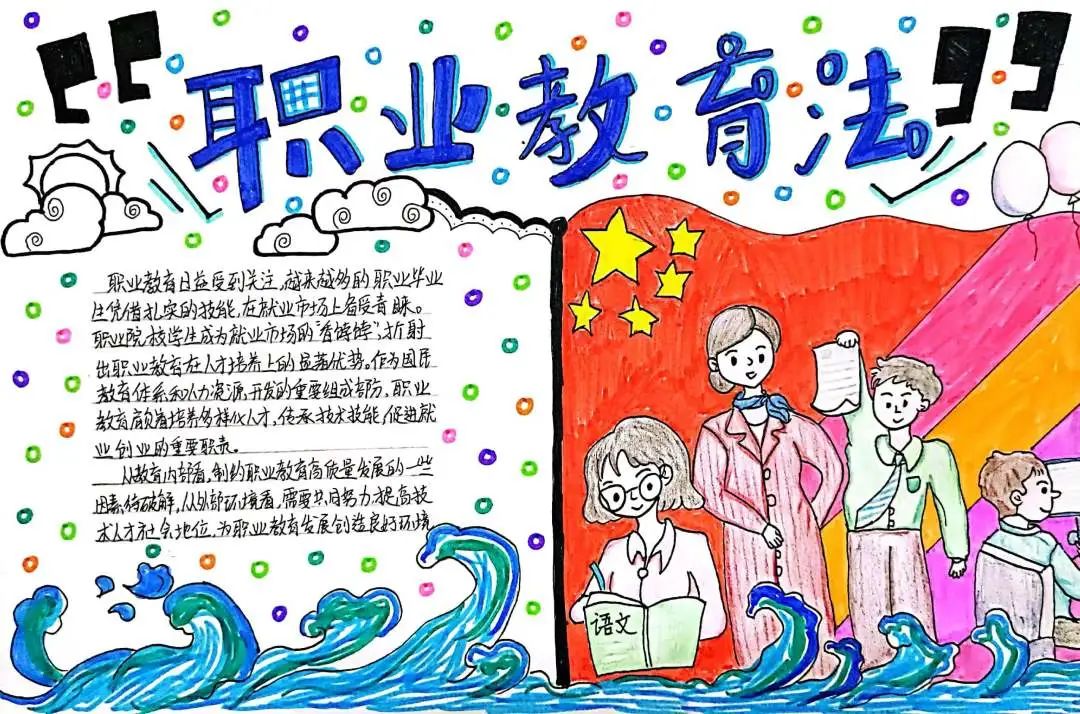 职业教育法
职业教育日益受到关注,越来越多的职业毕业
生凭借扎实的技能,在就业市场上备受青睐。
职业院校学生成为就业市场的"香饽饽",折射
出职业教育在人才培养上的显著优势。作为国民
教育体系和人力资源开发的重要组成部分,职业
教育肩负着培养多样化人才,传承技术技能,促进就
业创业的重要职责。
从教育内部看,制约职业教育高质量发展的一些
因素待破解,从外部环境看,需要共同努力提高技
术人才社会地位,为职业教育发展创造良好环境
语文